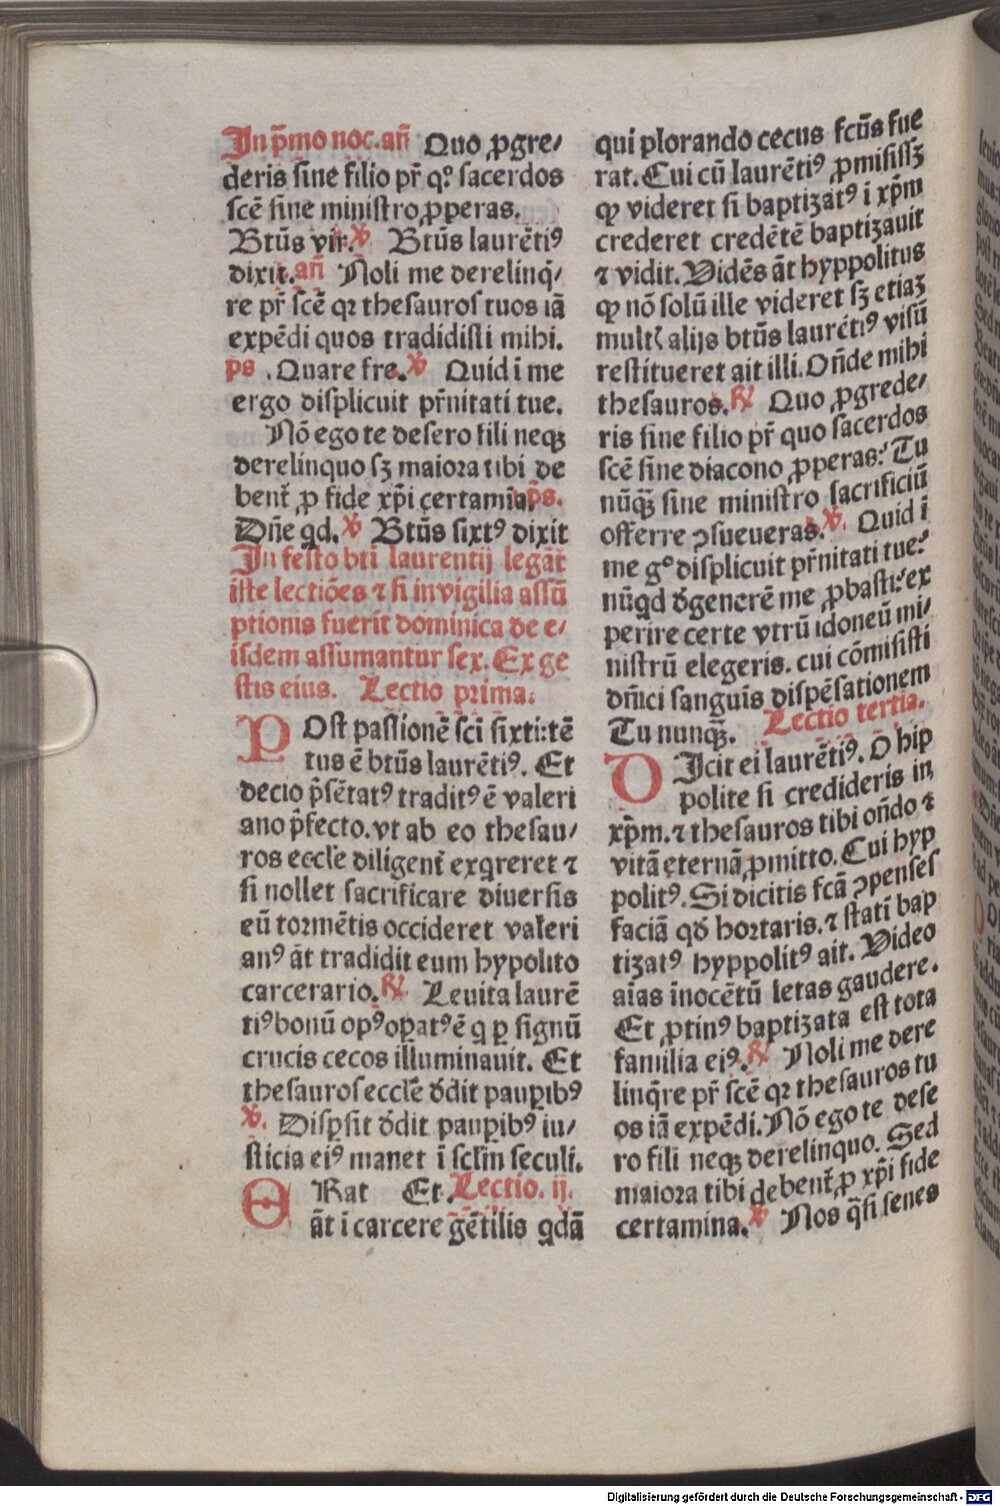 In p̄mo noc. añ Quo ꝓgre⸗
deris ſine filio pr̄ qͦ ſacerdos
ſcē ſine miniſtro ꝓperas.
Btūs vir. ℣ Btūs laurētiꝰ
dixit. añ Noli me derelinq̄⸗
re pr̄ ſcē qꝛ theſauroſ tuos iā
expēdi quos tradidiſti mihi.
ps . Quare fre. ℣ Quid i me
ergo diſplicuit pr̄nitati tue.
Nō ego te deſero fili neqꝫ
derelinquo ſꝫ maiora tibi de
bent̄ ꝓ fide xp̄i certamīa. p̄s.
Dn̄e qd. ℣ Btūs ſixtꝰ dixit
In feſto btī laurentij legāt̄
iſte lectiōes ⁊ ſi in vigilia aſſū
ptionis fuerīt dominica de e⸗
iſdem aſſumantur ſex. Ex ge
ſtis eius. Lectio prima.
POſt paſſionē ſcī ſixti: tē
tus ē btūs laurētiꝰ. Et
decio p̄ſētatꝰ traditꝰ ē valeri
ano p̄fecto. vt ab eo theſau⸗
ros eccl̄e diligent̄ exqreret ⁊
ſi nollet ſacrificare diuerſis
eū tormētis occideret valeri
anꝰ āt tradidit eum hypolito
carcerario. ℟ Leuita laurē
tiꝰ bonū opꝰ opatꝰ ē q ꝑ ſignū
crucis cecos illuminauit. Et
theſauroſ eccl̄e ddit pauꝑibꝰ
℣. Diſꝑſit ddit pauꝑibꝰ iu⸗
ſticia eiꝰ manet ī ſcl̄m ſeculi.
ORat Et. Lectio. ij.
āt i carcere gētilis qdā
qui plorando cecus fctūs fue
rat. Cui cū laurētiꝰ ꝓmiſiſſꝫ
ꝙ videret ſi baptizatꝰ i xp̄m
crederet credētē baptizauit
⁊ vidit. Vidēs āt hyppolitus
ꝙ nō ſolū ille videret ſꝫ etiaꝫ
mult̄ alijs btūs laurētiꝰ viſū
reſtitueret ait illi. Oñde mihi
theſauros. ℟ Quo ꝓgrede⸗
ris ſine filio pr̄ quo ſacerdos
ſcē ſine diacono ꝓperas: Tu
nūqꝫ ſine miniſtro ſacrificiū
offerre ꝯſueueras. ℣. Quid i
me gͦ diſplicuit pr̄nitati tue:
nūqd dgenerē me ꝓbaſti: ex
perire certe vtrū idoneū mi⸗
niſtrū elegeris. cui cōmiſiſti
dn̄ici ſanguīs diſpēſationem
Tu nunqꝫ. Lectio tertia.
DIcit ei laurētiꝰ. O hip
polite ſi credideris in
xp̄m. ⁊ theſauros tibi oñdo ⁊
vitā eternā ꝓmitto. Cui hyp
politꝰ. Si dicitis fcā ꝯpenſeſ
faciā qd hortaris. ⁊ ſtatī bap
tizatꝰ hyppolitꝰ ait. Video
aīas īnocētū letas gaudere.
Et ꝓtinꝰ baptizata eſt tota
familia eiꝰ. ℟ Noli me dere
linq̄re pr̄ ſcē qꝛ theſauros tu
os iā expēdi. Nō ego te deſe
ro fili neqꝫ derelinquo. Sed
maiora tibi debent̄ ꝓ xp̄i fide
certamina. ℣ Nos q̄ſi ſenes
Digitalisierung gefördert durch die Deutsche Forschungsgemeinschaft - DFG